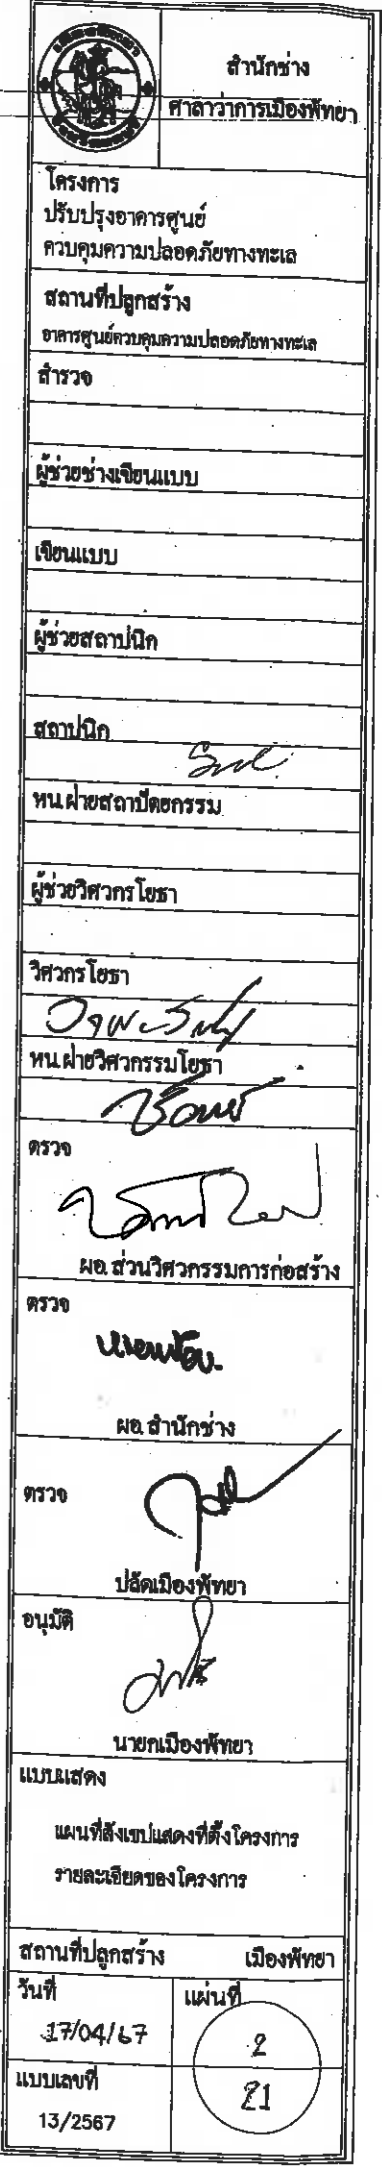 สำนักช่าง
ศาลาว่าการเมืองพัทยา
โครงการ
ปรับปรุงอาคารศูนย์
ควบคุมความปลอดภัยทางทะเล
สถานที่ปลูกสร้าง
อาคารศูนย์ควบคุมความปลอดภัยทางทะเล
สำรวจ
ผู้ช่วยช่างเขียนแบบ
เขียนแบบ
ผู้ช่วยสถาปนิก
สถาปนิก
หน.ฝ่ายสถาปัตยกรรม
ผู้ช่วยวิศวกรโยธา
วิศวกรโยธา
หน.ฝ่ายวิศวกรรมโยธา
ตรวจ
ผอ.ส่วนวิศวกรรมการก่อสร้าง
ตรวจ
ผอ.สำนักช่าง
ตรวจ
ปลัดเมืองพัทยา
อนุมัติ
นายกเมืองพัทยา
แบบแสดง
แผนที่สังเขปแสดงที่ตั้งโครงการ
รายละเอียดของโครงการ
สถานที่ปลูกสร้าง เมืองพัทยา
วันที่ แผ่นที่
17/04/67 2
แบบเลขที่ 21
13/2567